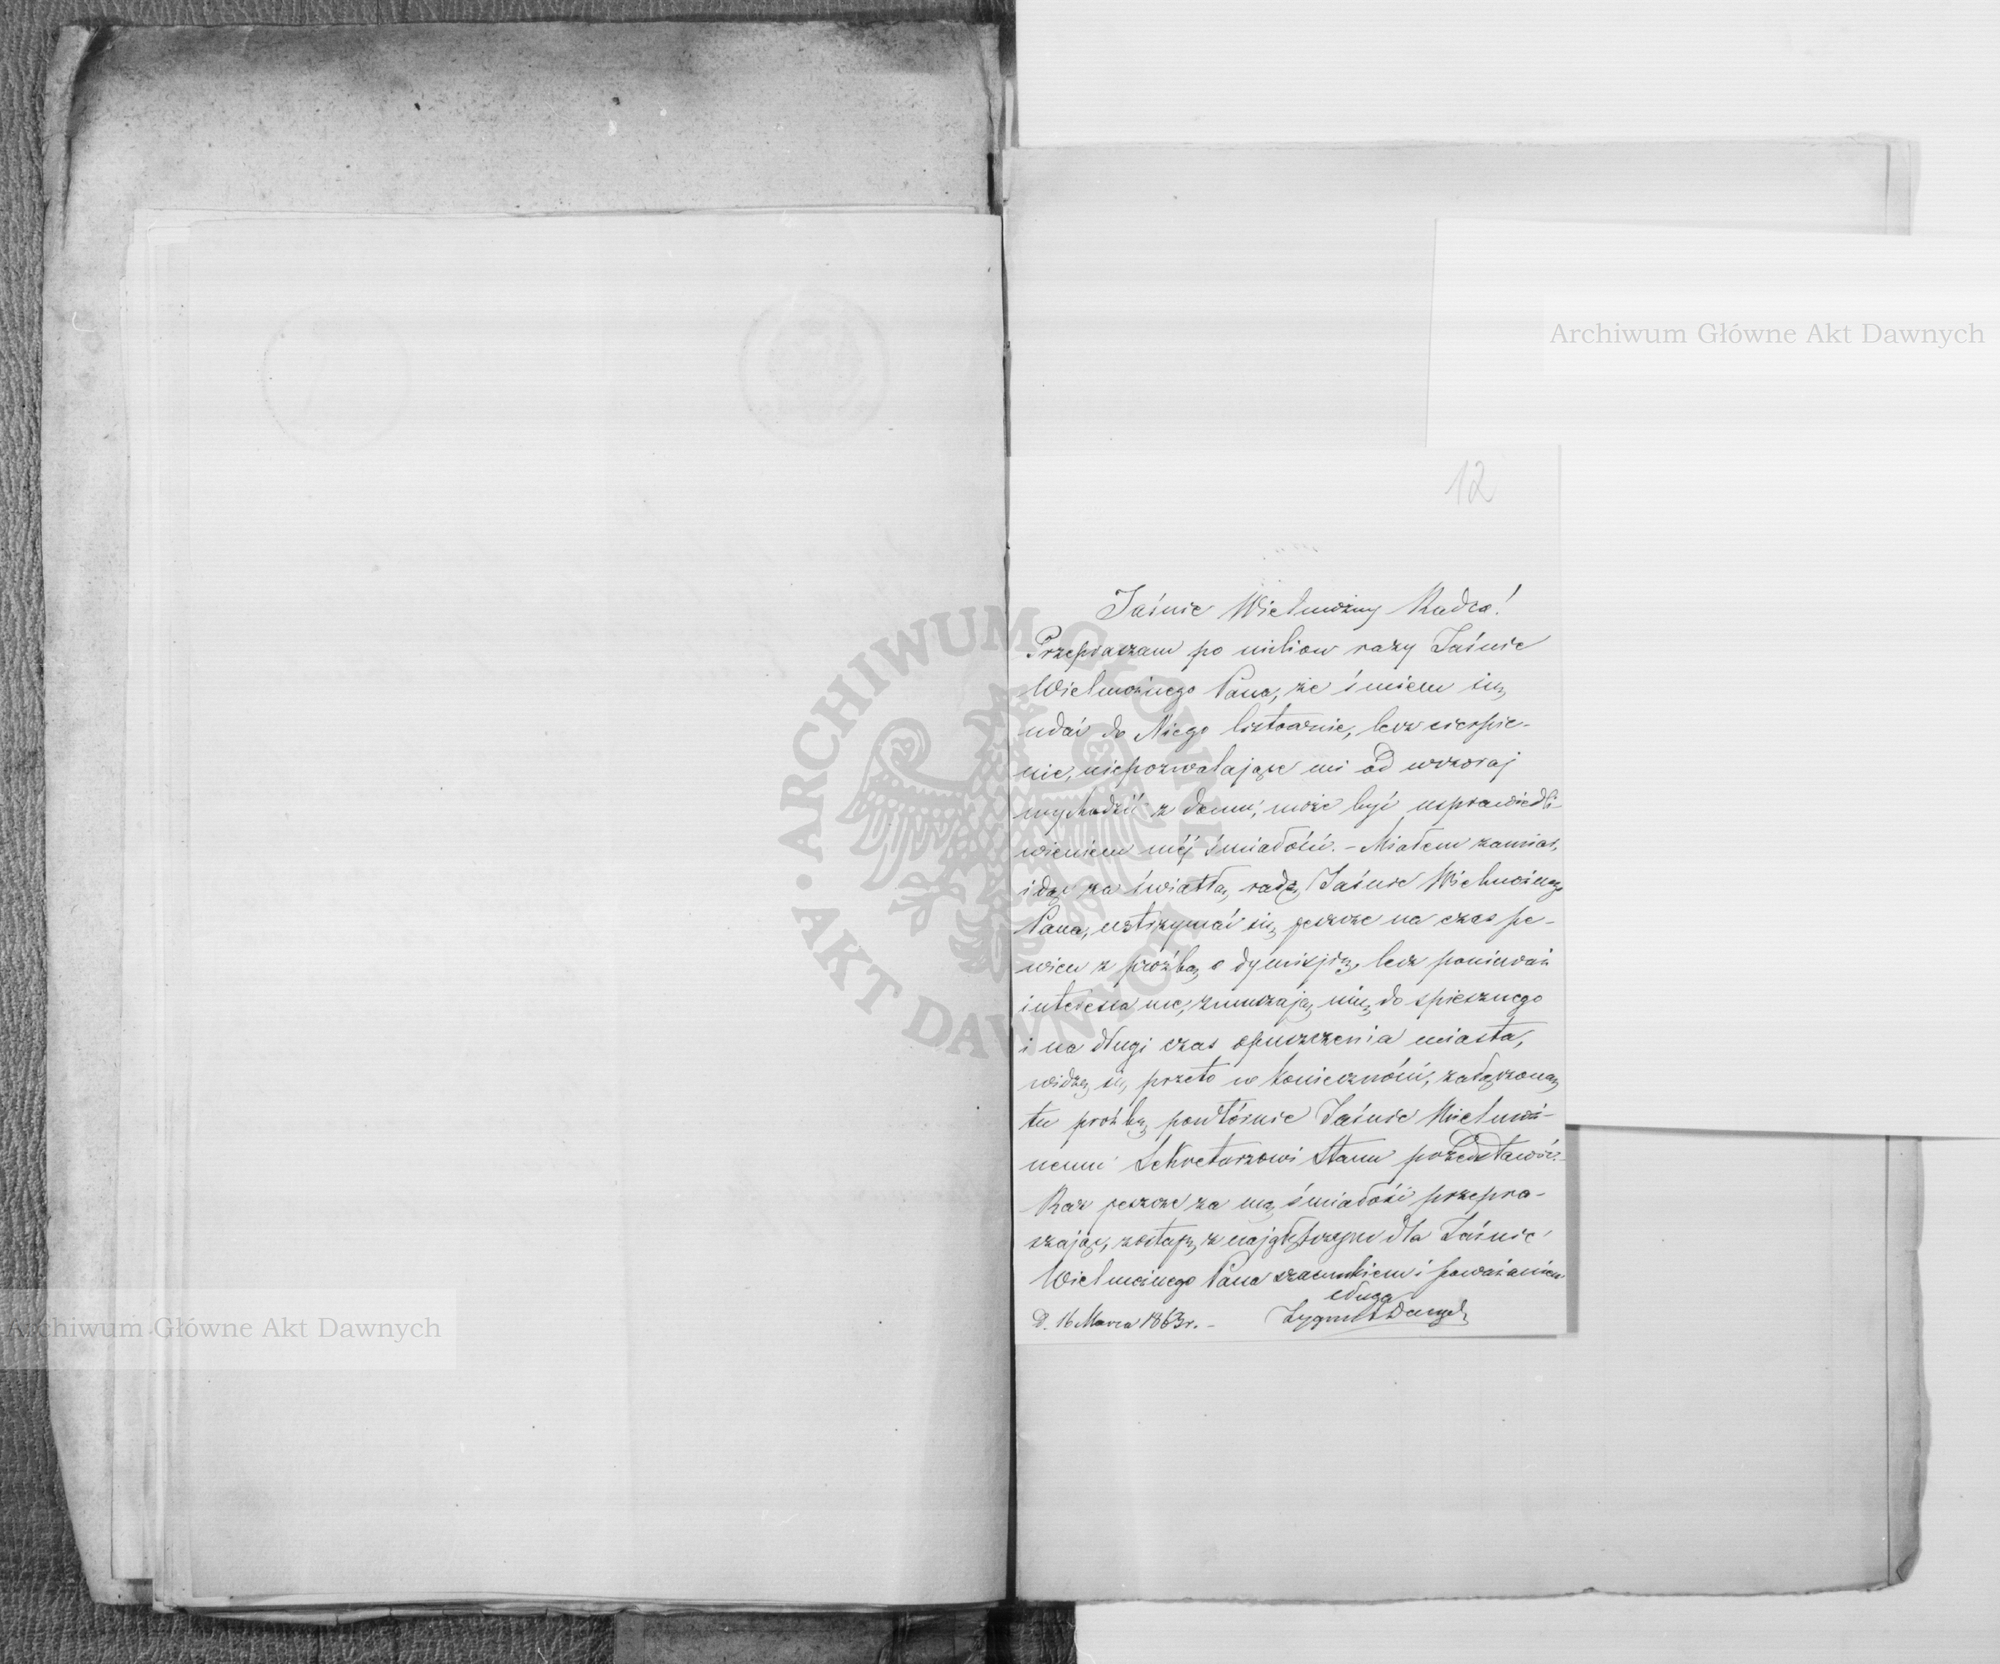 12
Jaśnie Wielmożny Radco!
Przepraszam po milion razy Jaśnie
Wielmożnego Pana, że śmiem się
udać do Niego listownie, lecz cierpie-
nie, niepozwalające mi od wczoraj
wychodzić z domu, może być usprawiedli-
wieniem méj śmiałości. - Miałem zamiar,
idąc za światłą radą Jaśnie Wielmożnego
Pana, wstrzymać się jeszcze na czas pe-
wien z prośbą o dymisję, lecz ponieważ
interessa me, zmuszają mię do spiesznego
i na długi czas opuszczenia miasta,
widzę się przeto w konieczności, załączoną
tu prośbę powtórnie Jaśnie Wielmoż-
nemu Sekretarzowi Stanu przedstawić.
Raz jeszcze za mą śmiałość przepra-
szając, zostaję z najgłębszym dla Jaśnie
Wielmożnego Pana szacunkiem i poważaniem
sługa
D. 16 Marca 1863 r. - Zygmunt
Archiwum Główne Akt Dawnych
Archiwum Główne Akt Dawnych
ARCHIWUM GŁÓWNE · AKT DAWNYCH